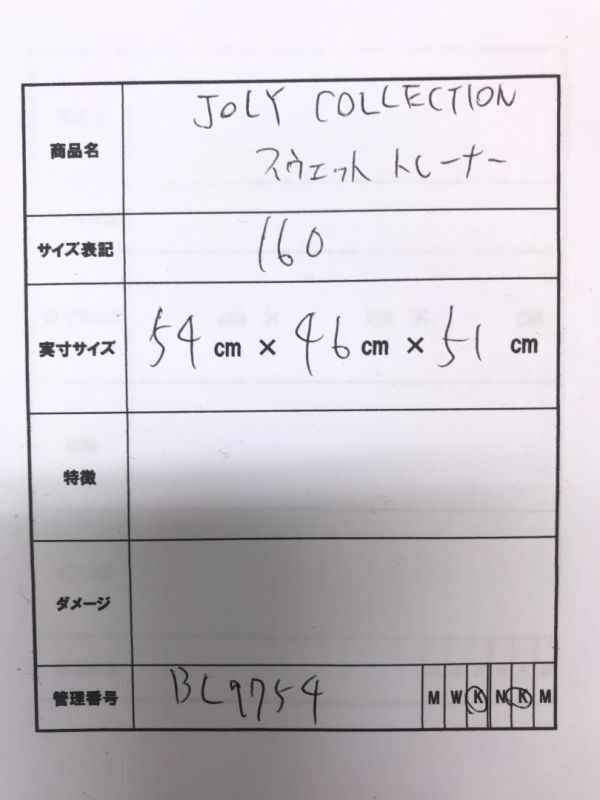 商品名 JOLY COLLECTION
スウェット トレーナー
サイズ表記 160
実寸サイズ 54 cm × 46 cm × 51 cm
特徴
ダメージ
管理番号 BL9754 M W K N K M